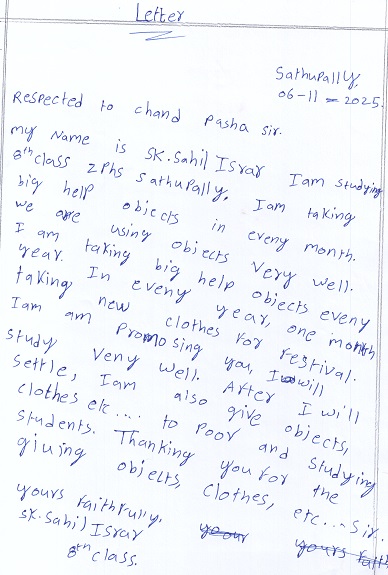 Letter
Sathupally,
06-11-2025.
Respected to chand pasha sir.
my Name is SK.Sahil Israr Iam studying
8th class ZPhs Sathupally, Iam taking
big help objects in eveny month.
we are using objects very well.
I am taking big help objects eveny
year. In eveny year, one month
taking new clothes for festival.
Iam am promosing you, I will
study veny well. After I will
settle, Iam also give objects,
clothes etc... to poor and studying
students. Thanking you for the
giving objects, clothes, etc... sir.
yours faithfully,
SK.Sahil Israr
8th class.